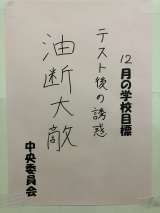 12月の学校目標
テスト後の誘惑
油断大敵
中央委員会